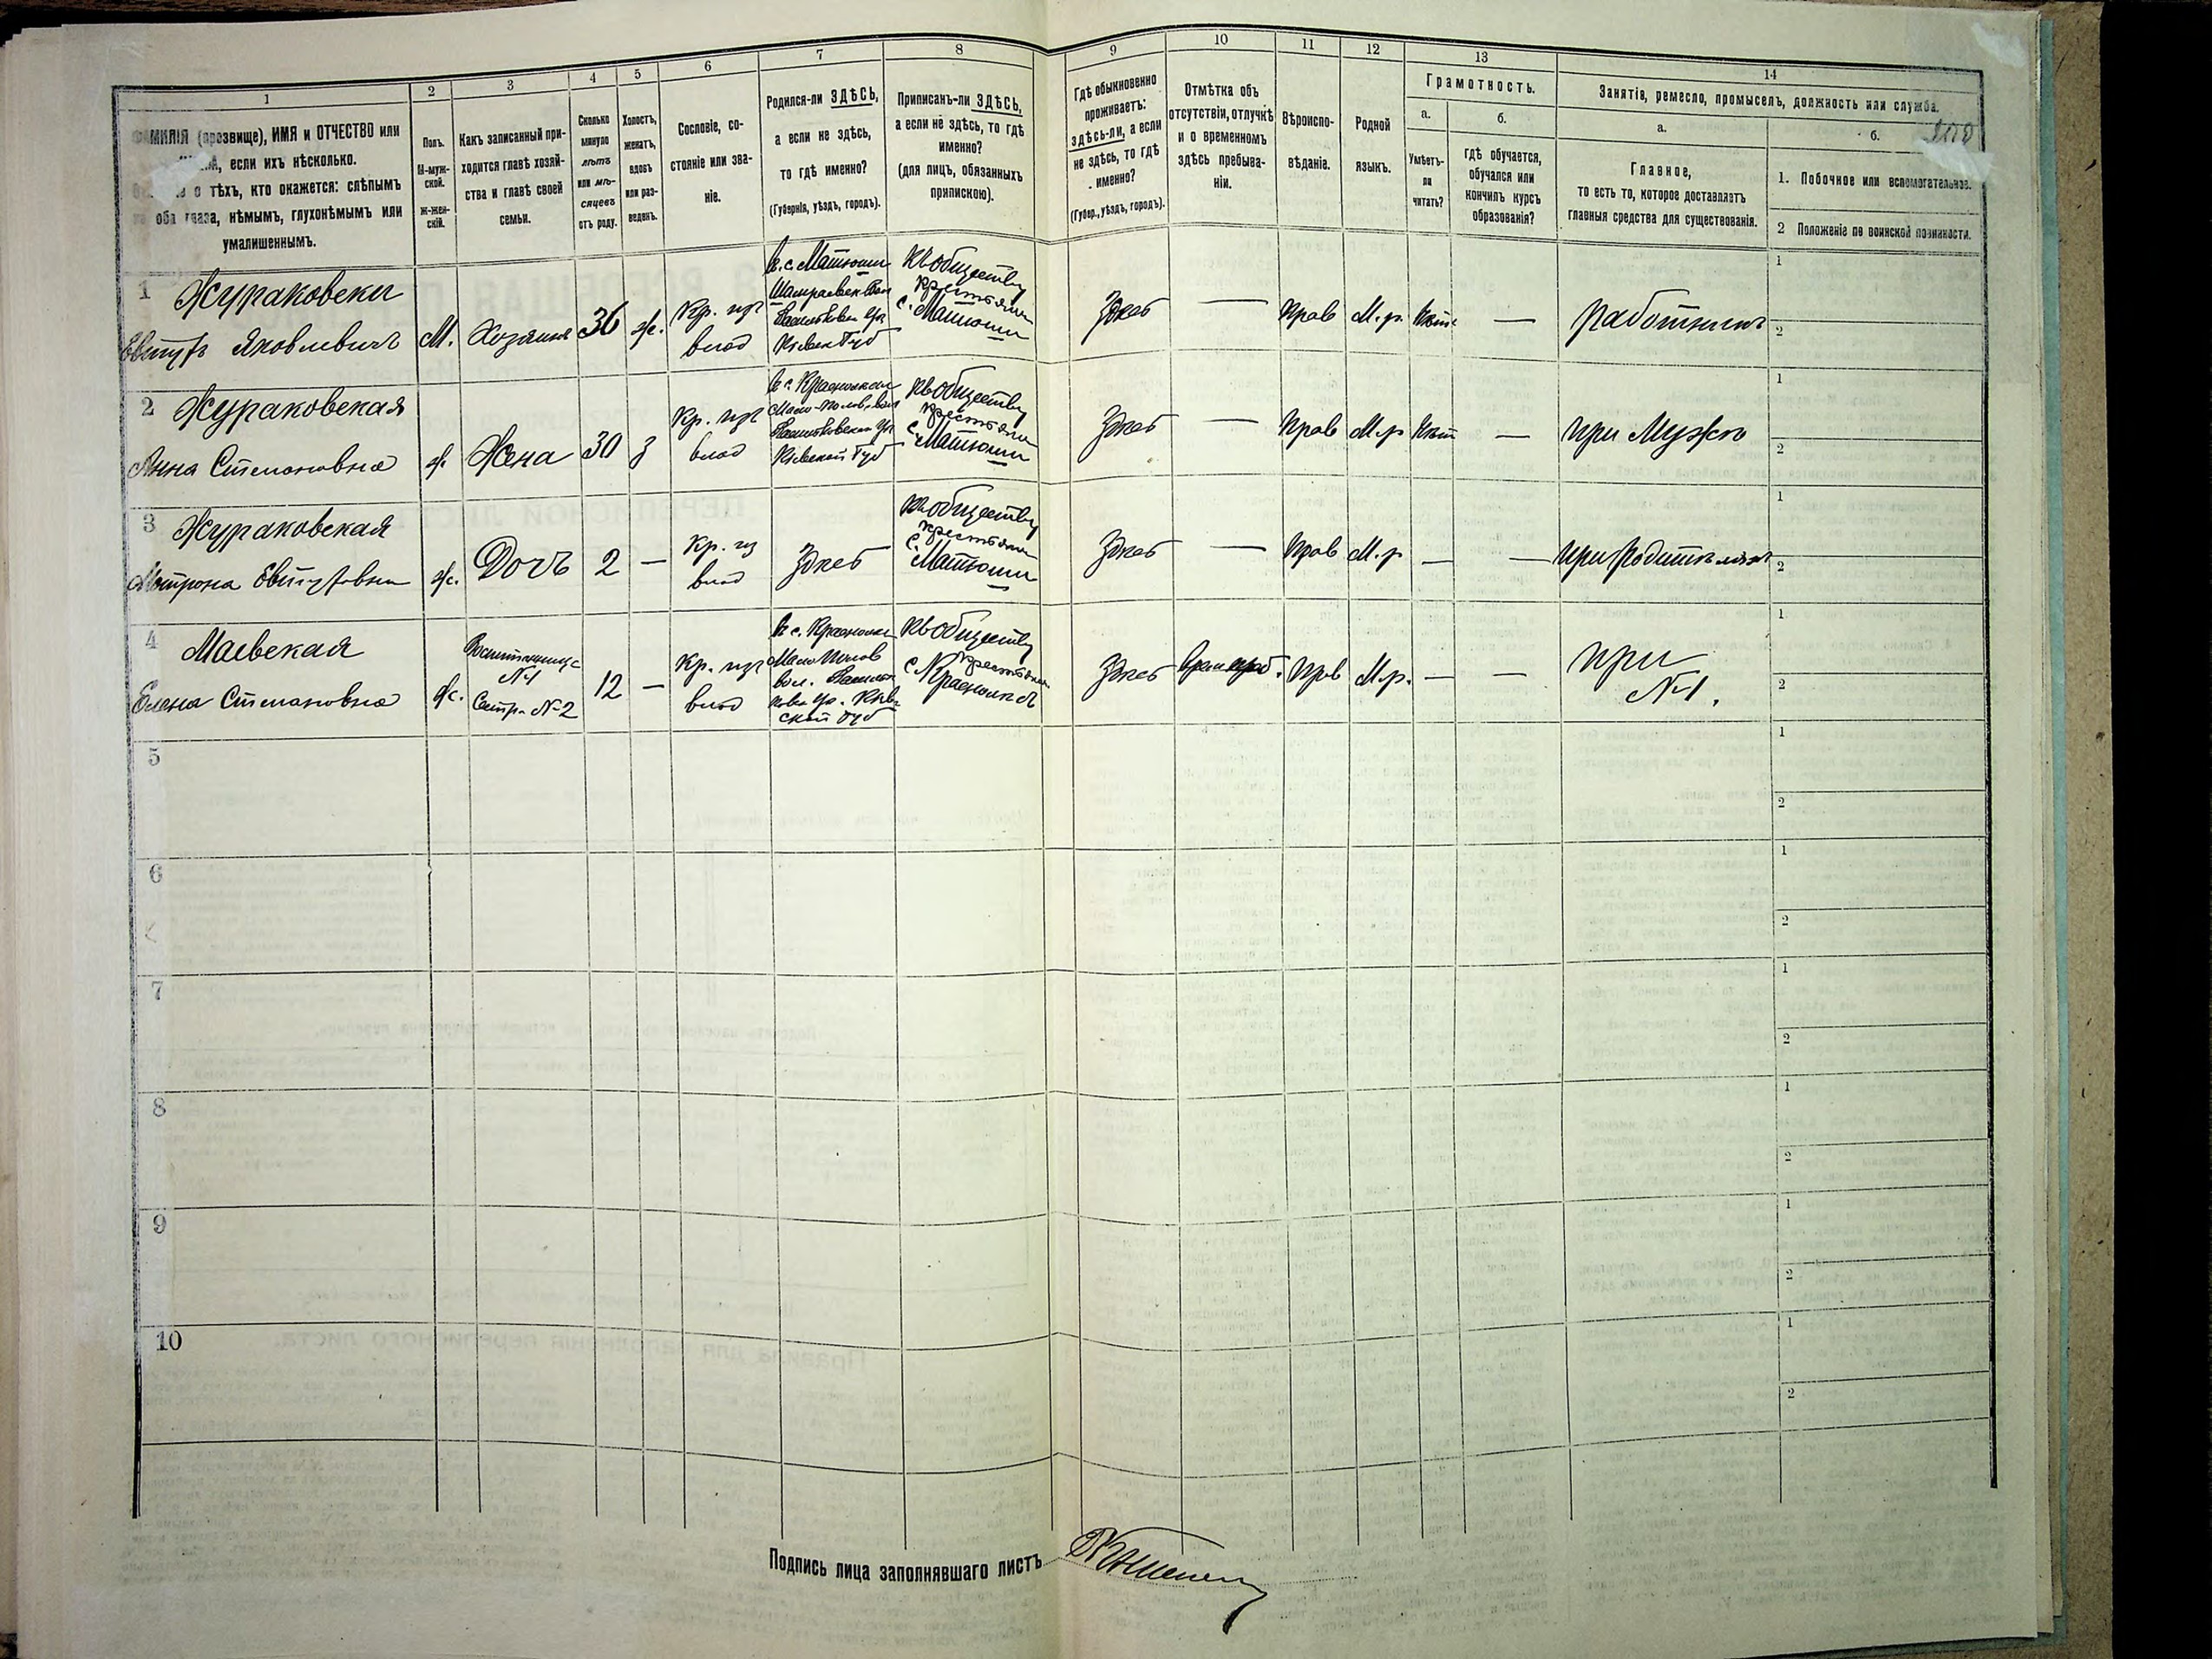 1
ФАМИЛІЯ (прозвище), ИМЯ и ОТЧЕСТВО или
если ихъ нѣсколько.
о тѣхъ, кто окажется: слѣпымъ
на оба глаза, нѣмымъ, глухонѣмымъ или
умалишеннымъ.
2
Полъ.
М-муж-
ской.
ж-жен-
скій.
3
Какъ записанный при-
ходится главѣ хозяй-
ства и главѣ своей
семьи.
4
Сколько
минуло
лѣтъ
или мѣ-
сяцевъ
отъ роду.
5
Холостъ,
женатъ,
вдовъ
или раз-
веденъ.
6
Сословіе, со-
стояніе или зва-
ніе.
7
Родился-ли ЗДѢСЬ,
а если не здѣсь,
то гдѣ именно?
(Губернія, уѣздъ, городъ).
8
Приписанъ-ли ЗДѢСЬ,
а если не здѣсь, то гдѣ
именно?
(для лицъ, обязанныхъ
припискою).
9
Гдѣ обыкновенно
проживаетъ:
здѣсь-ли, а если
не здѣсь, то гдѣ
именно?
(Губер., уѣздъ, городъ).
10
Отмѣтка объ
отсутствіи, отлучкѣ
и о временномъ
здѣсь пребыва-
ніи.
11
Вѣроиспо-
вѣданіе.
12
Родной
языкъ.
13
Грамотность.
а.
Умѣетъ-
ли
читать?
б.
гдѣ обучается,
обучался или
кончилъ курсъ
образованія?
14
Занятія, ремесло, промыселъ, должность или служба.
а.
Главное,
то есть то, которое доставляетъ
главныя средства для существованія.
б.
1. Побочное или вспомогательное.
2 Положеніе по воинской повинности.
1 Жураковски
Яковлевичъ
М.
Хозяинъ
36
ж.
Кр. изъ
влад
в. с. Матюши
Кіевск Губ
Къ обществу
крестьянъ
с. Матюши
Здѣсь
—
Прав
М. р.
Нѣтъ
—
Работникъ
1
2
2 Жураковская
Анна Степановна
ж.
Жена
30
з
Кр. изъ
влад
Кіевской Губ
Къ обществу
крестьянъ
с. Матюши
Здѣсь
—
Прав
М. р
Нѣт
—
при Мужѣ
1
2
3 Жураковская
Мотрона
ж.
Дочь
2
—
Кр. из
влад
Здѣсь
Къ обществу
крестьянъ
с. Матюши
Здѣсь
—
Прав
М. р
—
—
при родителяхъ
1
2
4 Маевская
Елена Степановна
ж.
№1
Сестра №2
12
—
Кр. изъ
влад
Къ обществу
крестьянъ
Здѣсь
Прав
М. р.
—
—
при
№1.
1
2
5
1
2
6
1
2
7
1
2
8
1
2
9
1
2
10
1
2
Подпись лица заполнявшаго листъ